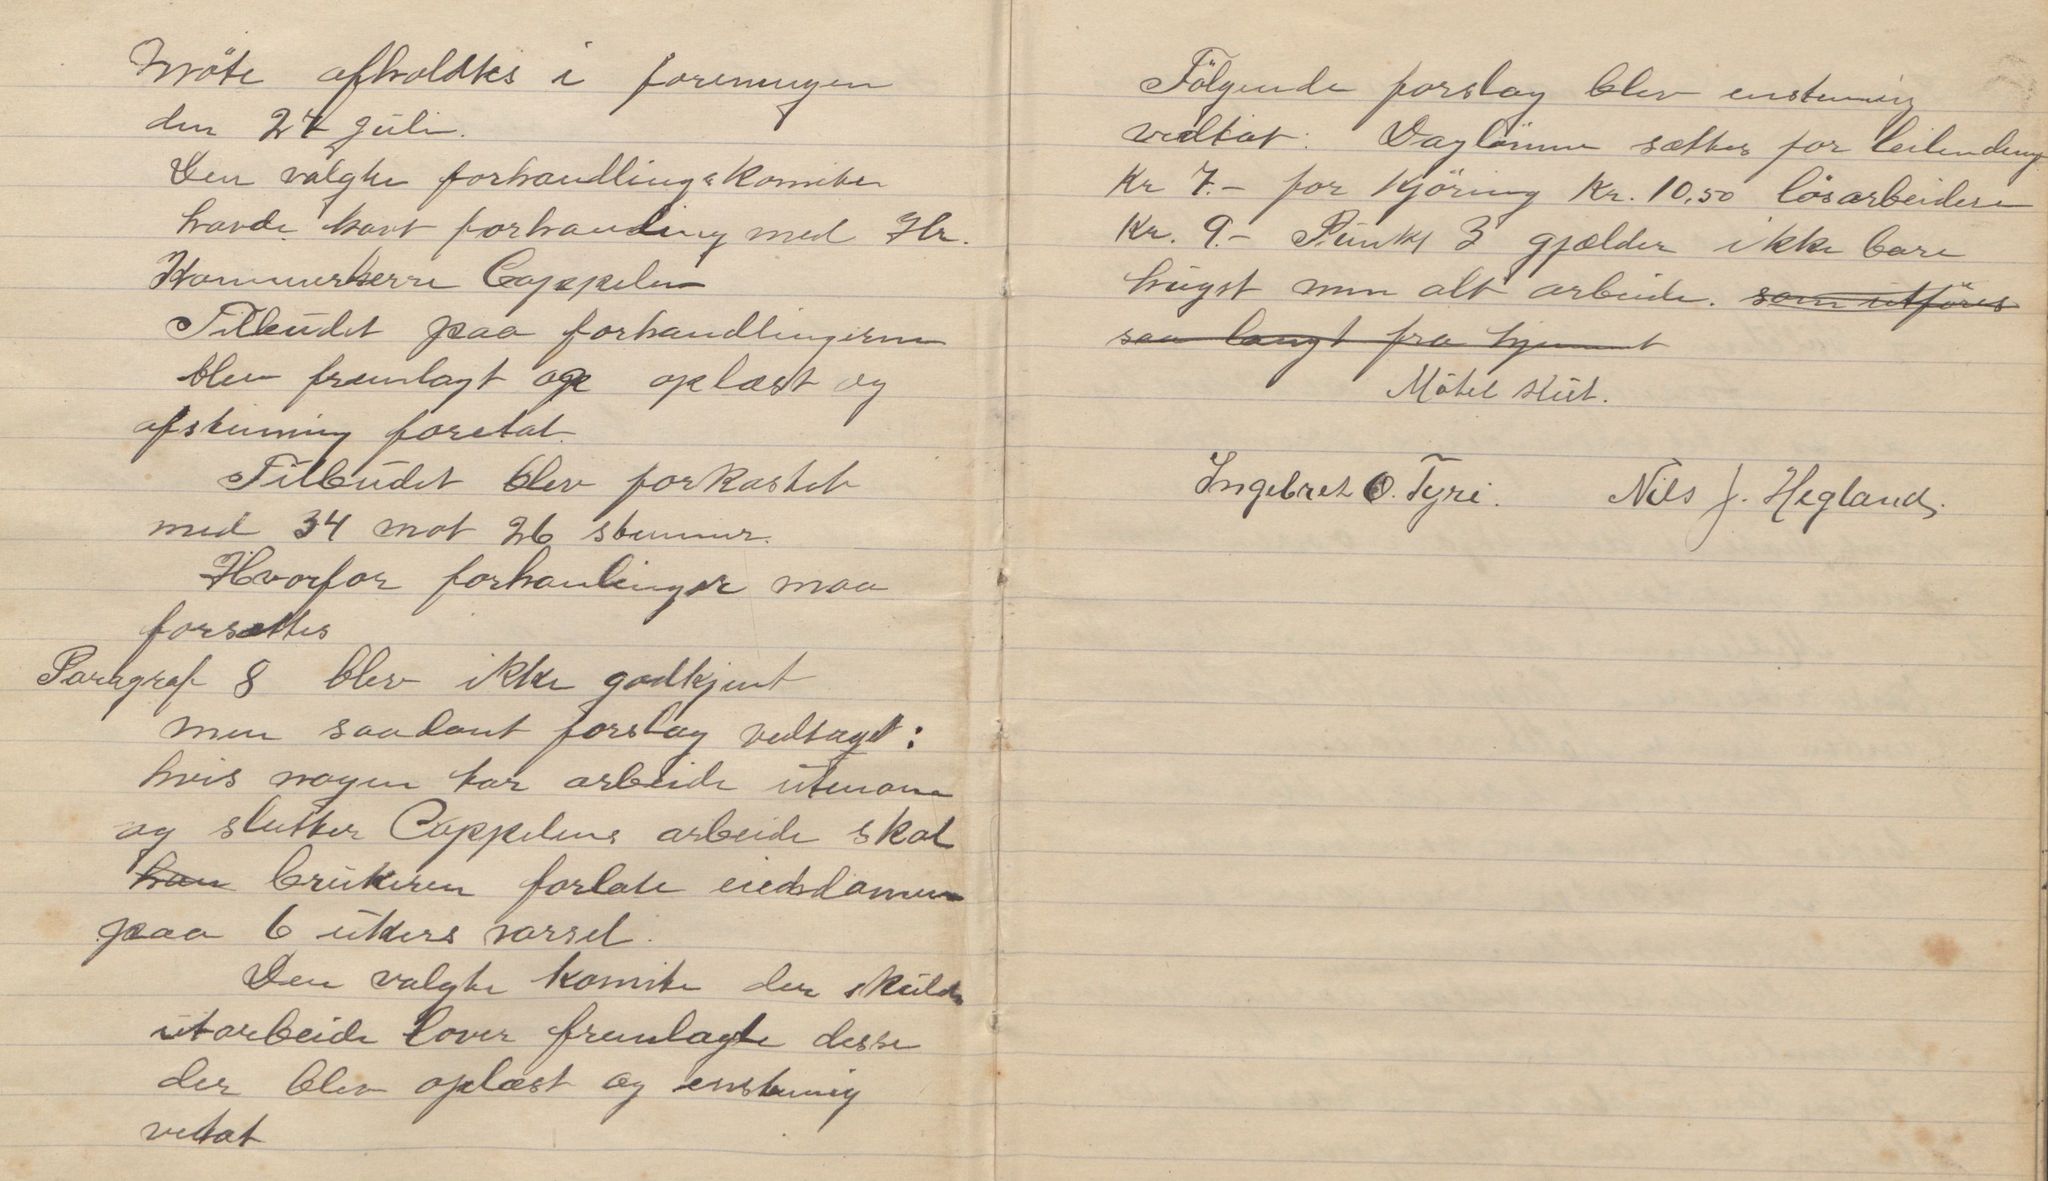 Möte afholdtes i foreningen
den 27 Juli.
Den valgte forhandlingskomite
havde havt forhandling med Hr.
Kammerherre Cappelen
Tilbudet paa forhandlingerne
blev fremlagt og oplæst og
afstemning foretat.
Tilbudet blev forkastet
med 34 mot 26 stemmer.
Hvorfor forhanlinger maa
forsættes
Paragraf 8 blev ikke godkjent
men saadant forslag vedtaget:
hvis nogen tar arbeide utenom
og slutter Cappelens arbeide skal
han brukeren forlate eiedsdommen
paa 6 ukers varsel.
Den valgte komite der skulde
utarbeide lover fremlagte disse
der blev oplæst og enstemig
vetat
Fölgende forslag blev enstemig
vedtat: Daglönnen sættes for leilending
Kr 7.- for kjöring Kr. 10,50 lösarbeidere
Kr. 9.- Punkt 3 gjælder ikke bare
hugst men alt arbeide. som utföres
saa langt fra hjemmet
Mötet slut.
Ingebret O. Tyri. Nils J. Hegland.